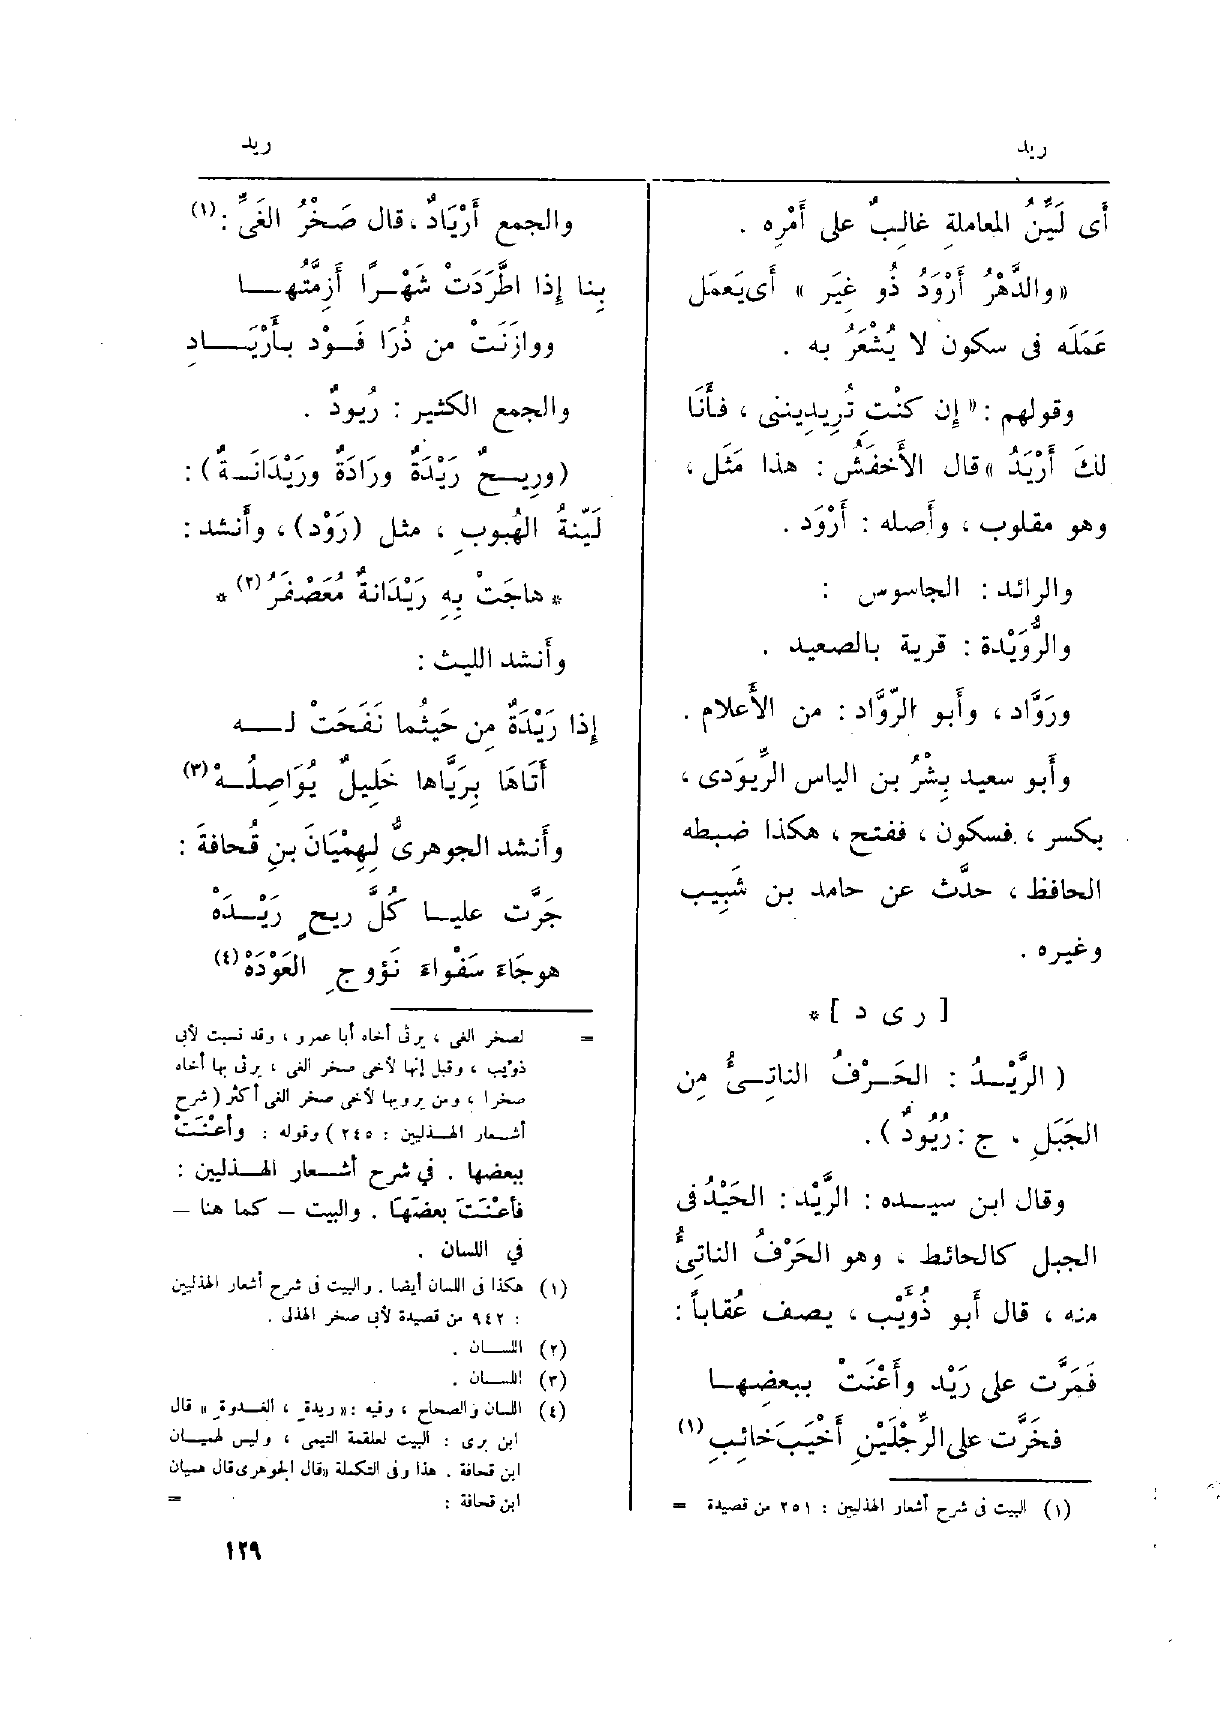 ريد
ريد
أى لَيِّنُ المعاملةِ غالِبٌ على أَمْرِه .
«والدَّهْرُ أَرْوَدُ ذُو غِيَر » أَى يَعمَل
عَمَلَه فى سكون لا يُشْعَرُ به .
وقولهم : « إِن كنْتِ تُرِيدِينى ، فأَنَا
لكِ أَرْيَدُ » قال الأَخفَشُ : هذا مَثَل ،
وهو مقلوب ، وأَصله : أَرْوَد .
والرائد : الجاسوس :
والرُّوَيْدة : قرية بالصعيد .
ورَوَّاد ، وأَبو الرّوَّاد : من الأَعلام .
وأَبو سعيد بِشْرُ بن الياس الرِّيوَدى ،
بكسر ، فسكون ، ففتح ، هكذا ضبطه
الحافظ ، حدَّث عن حامد بن شَبِيب
وغيره .
[ ر ى د ] *
( الرَّيْـدُ : الحَـرْفُ الناتِـىُّ مِن
الجَبَلِ ، ج : رُيُودٌ ) .
وقال ابن سيـده : الرَّيْد : الحَيْدُ فى
الجبل كالحائط ، وهو الحَرْفُ الناتِىُّ
منه ، قال أَبو ذُؤَيْب ، يصف عُقاباً :
فَمَرَّت على رَيْد وأَعْنَتْ ببعضِهـا
فخَرَّت على الرِّجْلَيْنِ أَخْيَبَ خائِبِ (١)
(١) البيت فى شرح أشعار الهذليين : ٢٥١ من قصيدة =
والجمع أَرْيَادٌ ، قال صَخْرُ الغَىِّ : (١)
بِنا إِذا اطَّرَدَتْ شَهْـرًا أَزِمَّتُهـا
ووازَنَتْ من ذُرَا فَـوْد بـأَرْيَــادِ
والجمع الكثير : رُيودٌ .
(ورِيـحٌ رَيْدَةٌ ورَادَةٌ ورَيْدَانَـةٌ) :
لَيِّنةُ الهُبوبِ ، مثل (رَوْد) ، وأَنشد :
* هاجَتْ بِهِ رَيْدَانةٌ مُعَصْفَرُ (٢) *
وأَنشد الليث :
إِذا رَيْدَةٌ مِن حَيثُما نَفَحَتْ لــه
أَتَاهَا بِرَيَّاها خَلِيلٌ يُوَاصِلُـهْ (٣)
وأَنشد الجوهرىُّ لِهِمْيَانَ بنِ قُحافةَ :
جَرَّت عليـا كُلُّ رِيحٍ رَيْـدَهْ
هوجَاءَ سَفْواءَ نَؤُوجِ العَوْدَهْ (٤)
= لصخر الغى ، يرثى أخاه أبا عمرو ، وقد نسبت لأبى
ذؤيب ، وقيل إنها لأخى صخر الغى ، يرثى بها أخاه
صخرا ، ومن يرويها لأخى صخر الغى أكثر ( شرح
أشـعار الهـذليين : ٢٤٥ ) وقوله : وأعْنَتْ
ببعضها . في شرح أشـعار الهـذليين :
فأعْنَتَ بعضَهَا . والبيت - كما هنا -
في اللسان .
(١) هكذا فى اللسان أيضا . والبيت فى شرح أشعار الهذليين
: ٩٤٢ من قصيدة لأبى صخر الهذلى .
(٢) اللسـان .
(٣) اللسـان .
(٤) اللسان والصحاح ، وفيه : « ريدة ، الغـدوة » قال
ابن برى : البيت لعلقمة التيمى ، وليس لهميـان
ابن قحافة . هذا وفى التكملة «قال الجوهرى قال هميان
ابن قحافة : =
١٢٩